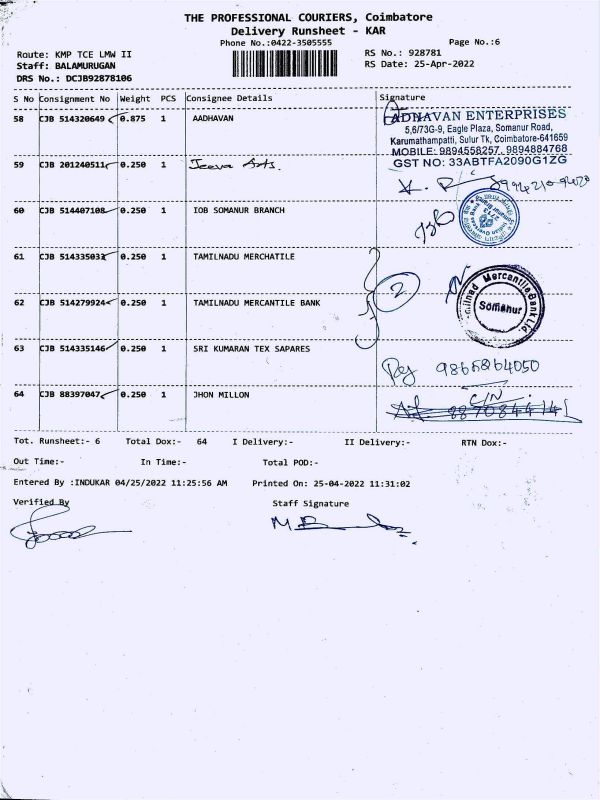 THE PROFESSIONAL COURIERS, Coimbatore
Delivery Runsheet - KAR
Phone No.:0422-3505555
Page No.:6
Route: KMP TCE LMW II
RS No.: 928781
Staff: BALAMURUGAN
RS Date: 25-Apr-2022
DRS No.: DCJB92878106
S No Consignment No Weight PCS Consignee Details Signature
58 CJB 514320649 0.875 1 AADHAVAN
AADHAVAN ENTERPRISES
5,6/73G-9, Eagle Plaza, Somanur Road,
Karumathampatti, Sulur Tk, Coimbatore-641659
MOBILE: 9894558257, 9894884768
GST NO: 33ABTFA2090G1ZG
59 CJB 201240511 0.250 1 Jeeva Arts.
60 CJB 514407108 0.250 1 IOB SOMANUR BRANCH
61 CJB 514335032 0.250 1 TAMILNADU MERCHATILE
2
62 CJB 514279924 0.250 1 TAMILNADU MERCANTILE BANK
Mercantile Bank Ltd.
Somanur
63 CJB 514335146 0.250 1 SRI KUMARAN TEX SAPARES
9866864050
64 CJB 88397047 0.250 1 JHON MILLON
C/N
Tot. Runsheet:- 6 Total Dox:- 64 I Delivery:- II Delivery:- RTN Dox:-
Out Time:- In Time:- Total POD:-
Entered By :INDUKAR 04/25/2022 11:25:56 AM Printed On: 25-04-2022 11:31:02
Verified By
Staff Signature